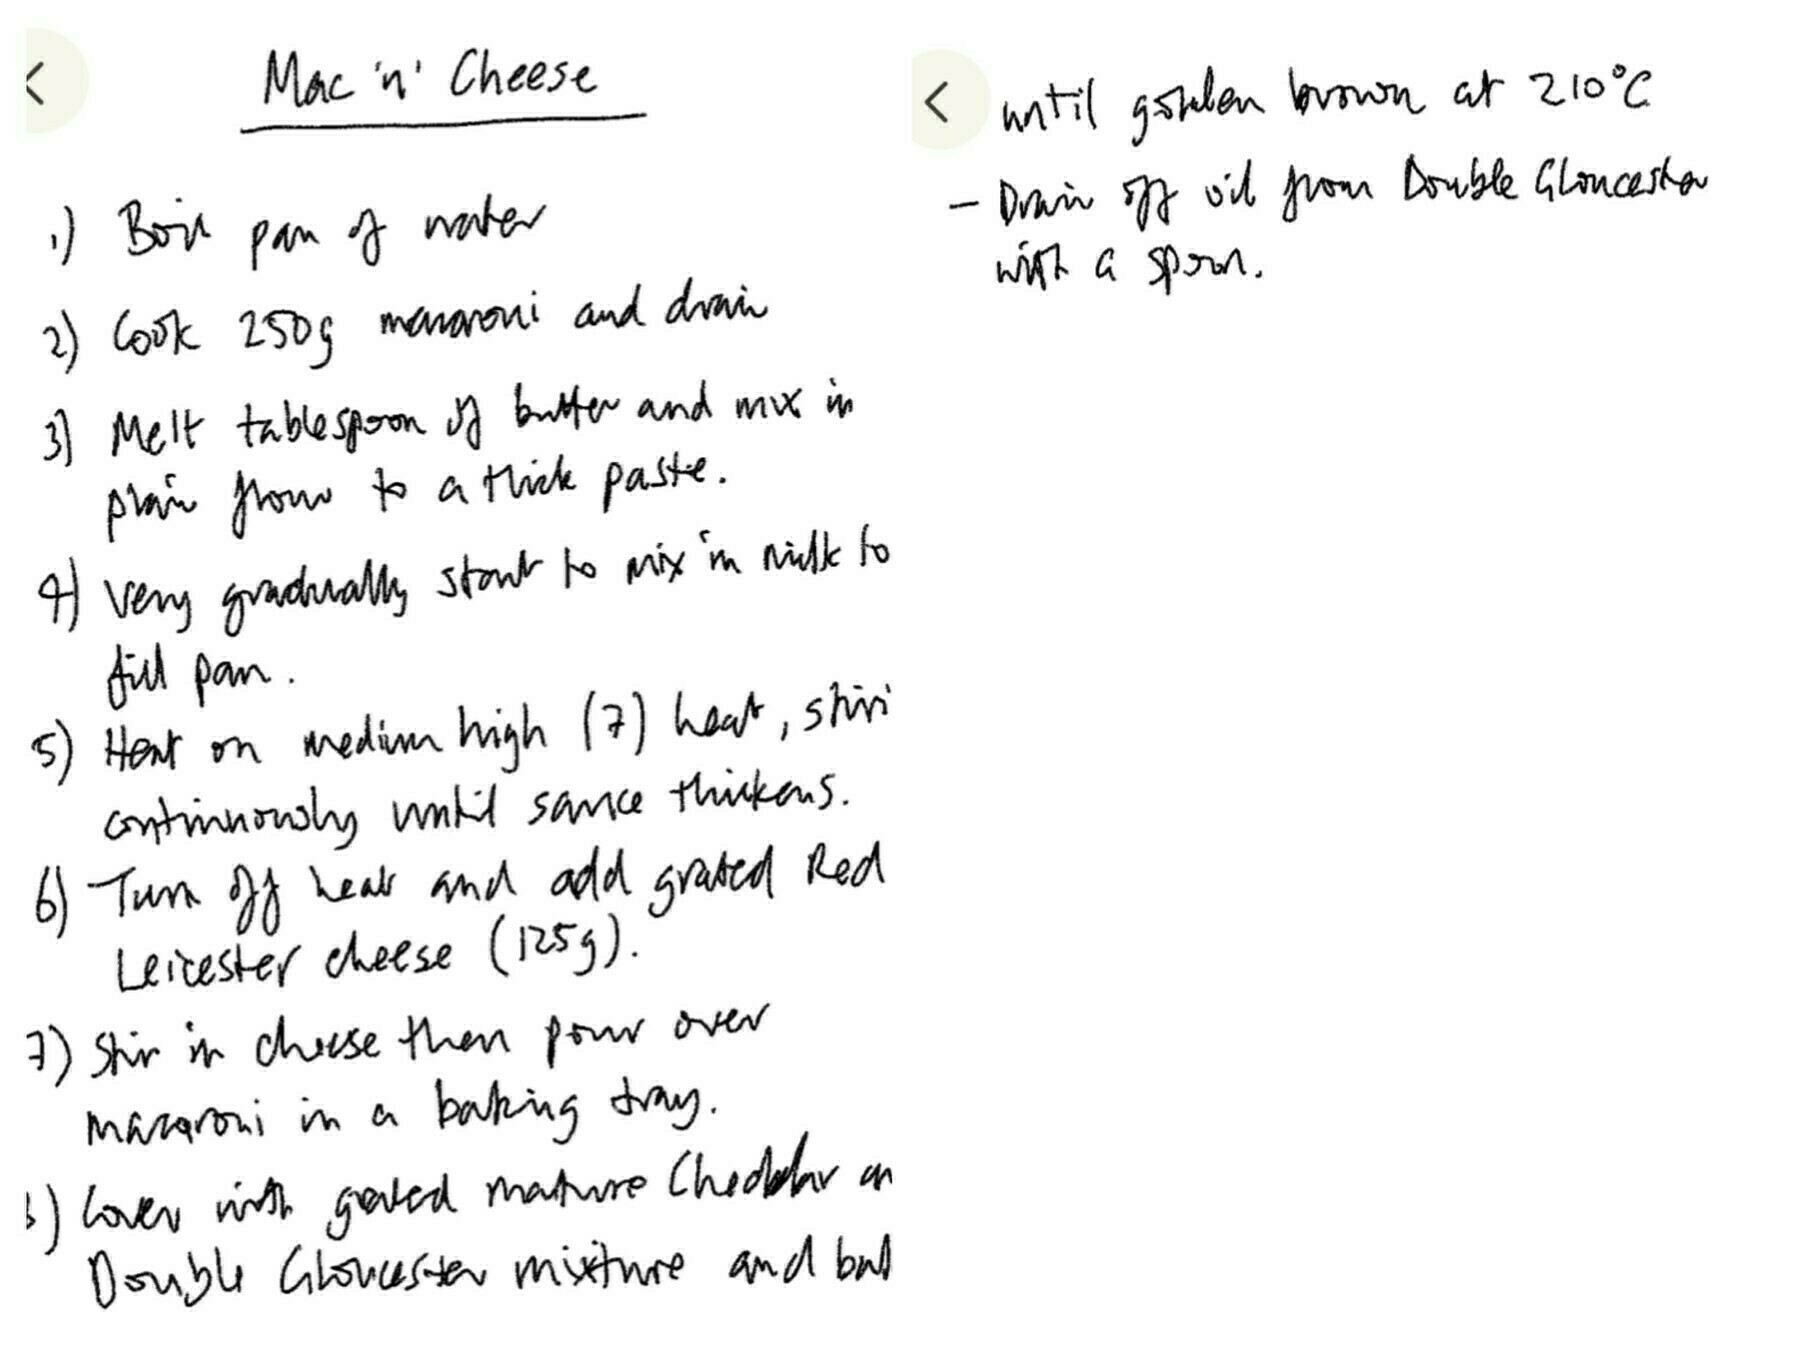 Mac 'n' Cheese
1) Boil pan of water
2) Cook 250g macaroni and drain
3) Melt tablespoon of butter and mix in
plain flour to a thick paste.
4) Very gradually start to mix in milk to
fill pan.
5) Heat on medium high (7) heat, stiri
continuously until sauce thickens.
6) Turn off heat and add grated Red
Leicester cheese (125g).
7) Stir in cheese then pour over
macaroni in a baking tray.
) Cover with grated mature Cheddar an
Double Gloucester mixture and
until golden brown at 210°C
- Drain off oil from Double Gloucester
with a spoon.